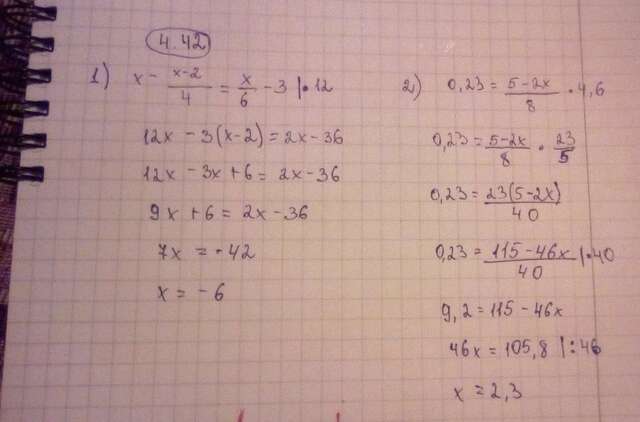 4.42
1) x - (x-2)/4 = x/6 - 3 |•12
12x - 3(x-2) = 2x - 36
12x - 3x + 6 = 2x - 36
9x + 6 = 2x - 36
7x = -42
x = -6
2) 0,23 = (5-2x)/8 • 4,6
0,23 = (5-2x)/8 • 23/5
0,23 = 23(5-2x)/40
0,23 = (115-46x)/40 |•40
9,2 = 115 - 46x
46x = 105,8 |:46
x = 2,3